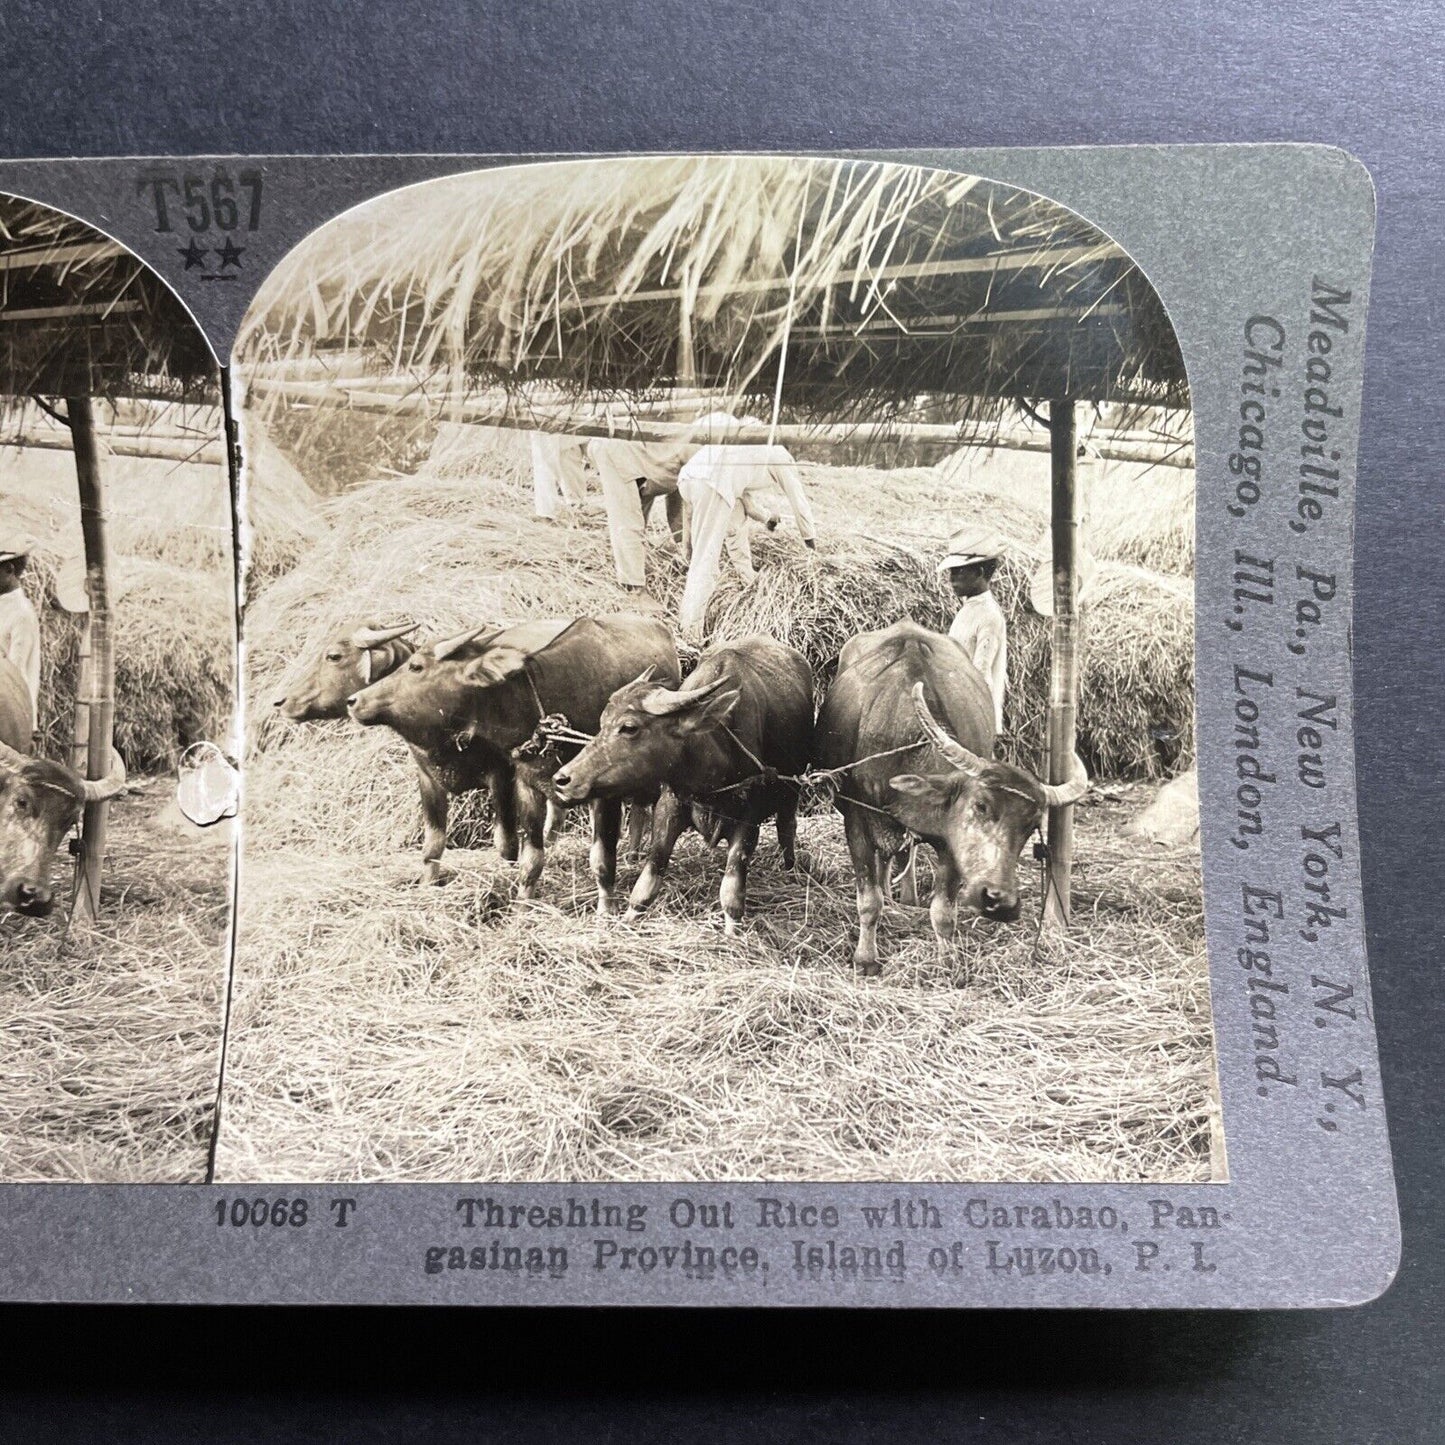 T567
★★
Meadville, Pa., New York, N. Y.,
Chicago, Ill., London, England.
10068 T Threshing Out Rice with Carabao, Pan-
gasinan Province, Island of Luzon, P. I.